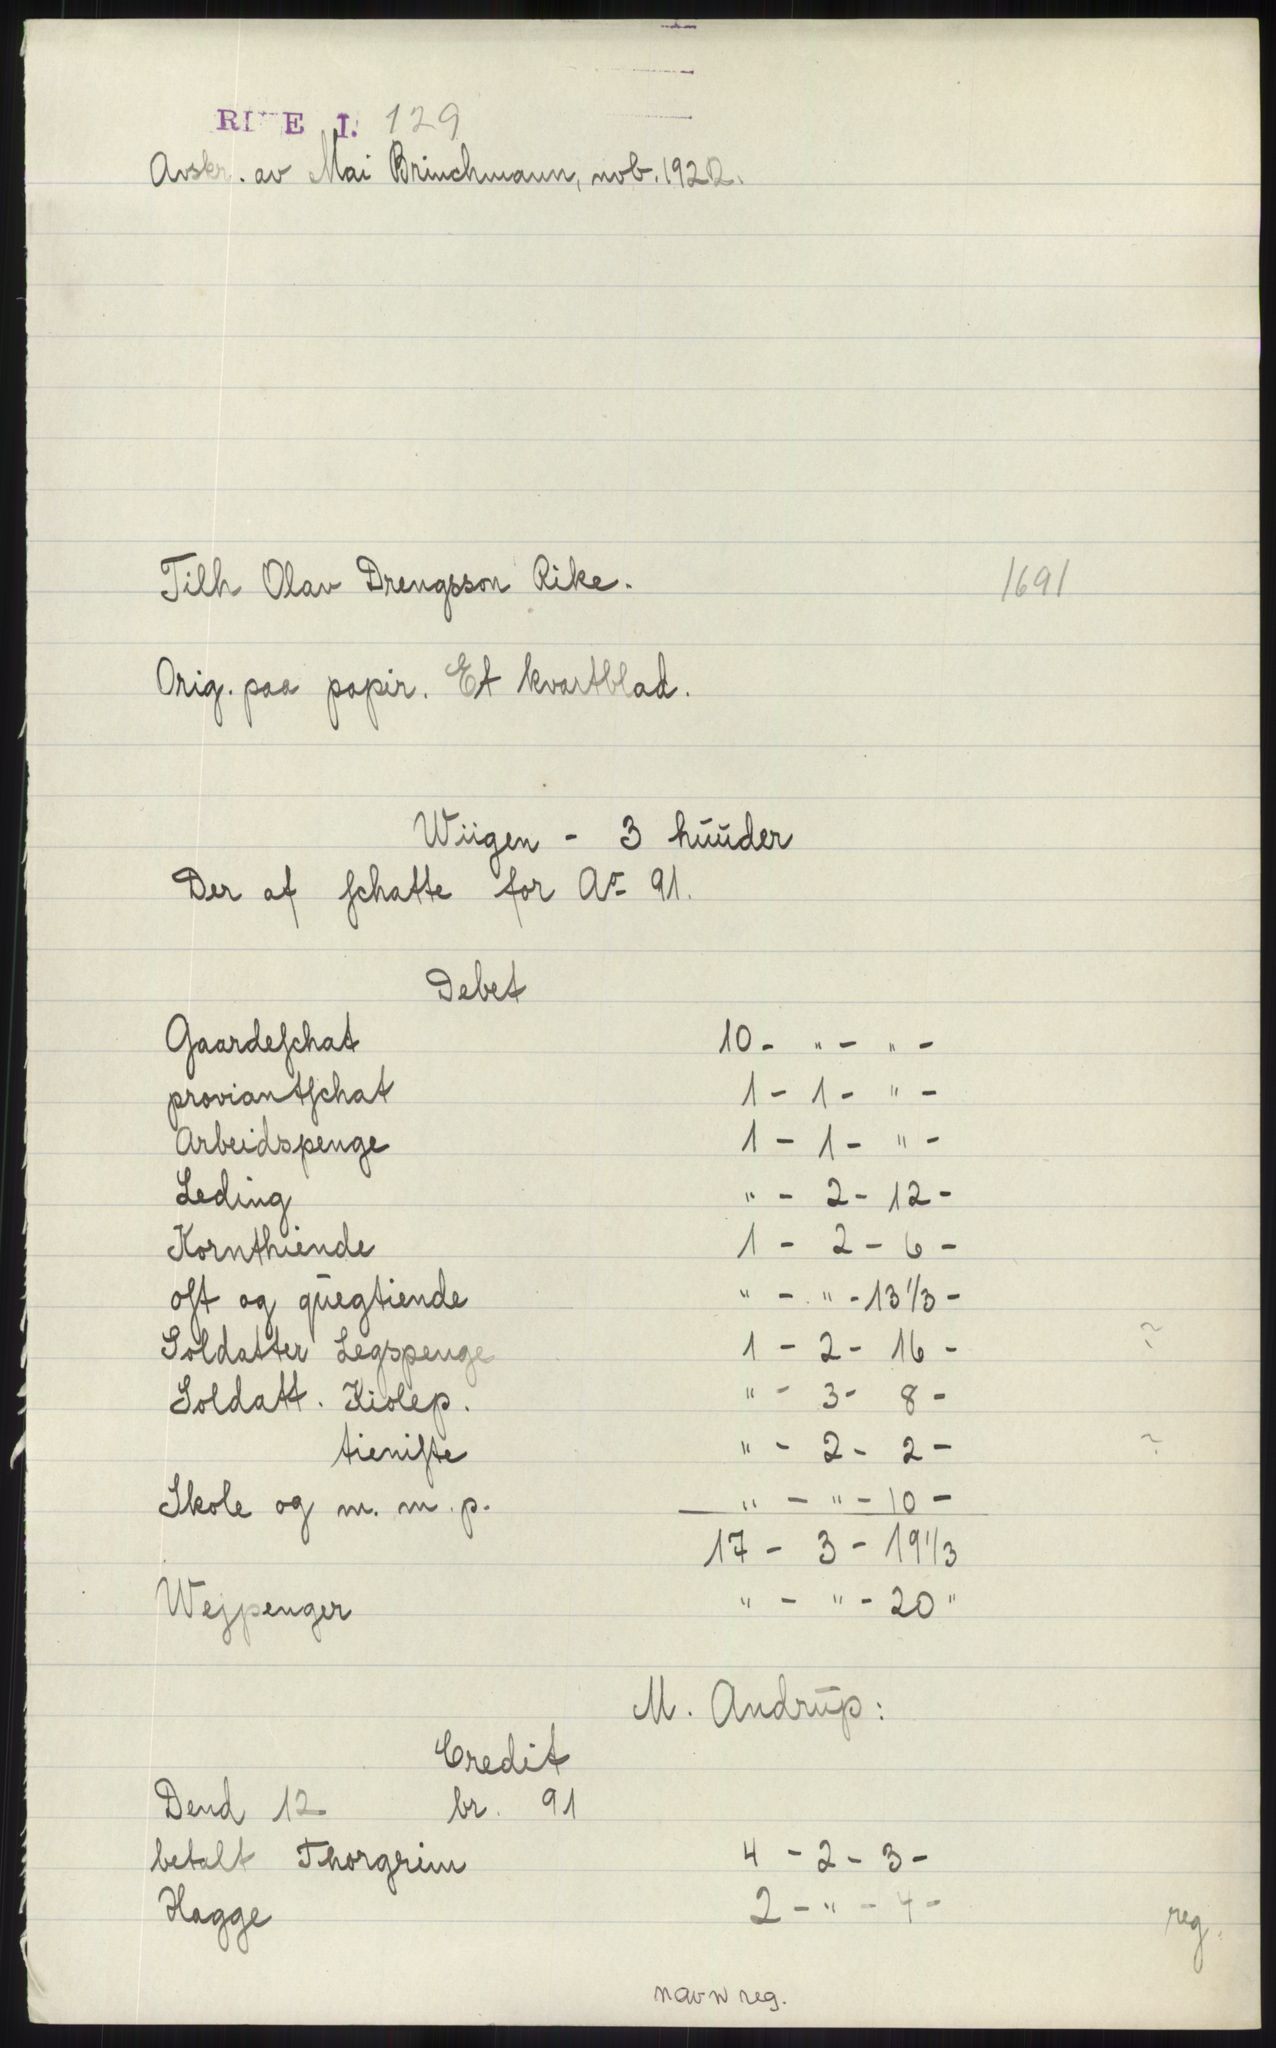 RIKE I. 129
Avskr. av Mai Brinchmann, nvb. 1922.
Tilh Olav Drengsson Rike. 1691
Orig. paa papir. Et kvartblad.
Wiigen - 3 húúder
Der af schatte for Ao 91.
Debet
Gaardeschat 10 - " - " -
proviantschat 1 - 1 - " -
Arbeidspenge 1 - 1 - " -
Leding " - 2 - 12 -
Kornthiende 1 - 2 - 6 -
ost og qúegtiende " - " - 13 1/3 -
Soldatter Legspenge 1 - 2 - 16 - ?
Soldatt. Kiolep. " - 3 - 8 -
tieniste " - 2 - 2 - ?
Skole og m. m. p. " - " - 10 -
17 - 3 - 19 1/3
Wejpenger " - " - 20 "
M. Andrúp:
Credit
Dend 12 br. 91
betalt Thorgrim 4 - 2 - 3 -
Hagge 2 - " - 4 -
reg.
navn reg.